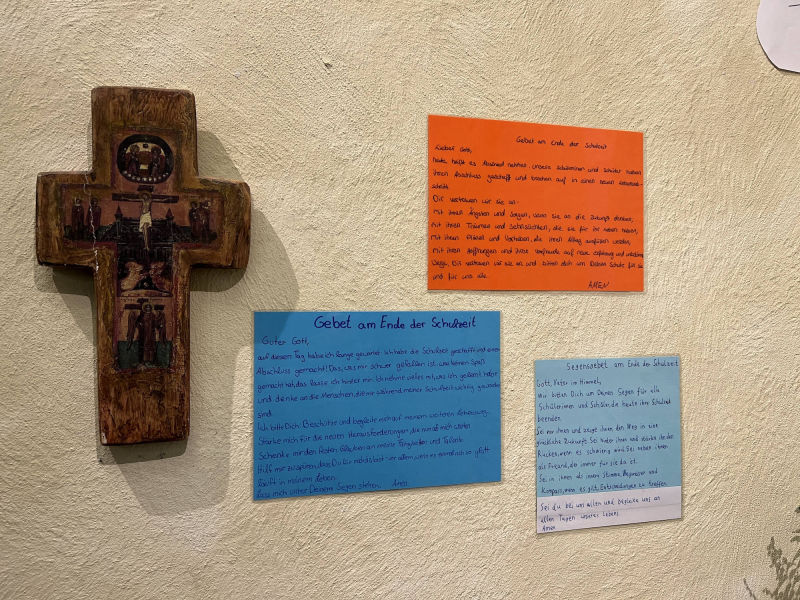 Gebet am Ende der Schulzeit
Lieber Gott,
heute heißt es Abschied nehmen. Unsere Schülerinnen und Schüler haben
ihren Abschluss geschafft und brechen auf in einen neuen Lebensab-
schnitt.
Dir vertrauen wir sie an:
Mit ihren Ängsten und Sorgen, wenn sie an die Zukunft denken,
mit ihren Träumen und Sehnsüchten, die sie für ihr Leben haben,
mit ihren Plänen und Vorhaben, die ihren Alltag ausfüllen werden,
mit ihren Hoffnungen und ihrer Vorfreude auf neue Erfahrung und
Wege. Dir vertrauen wir sie an und bitten dich um Deinen Schutz für sie
und für uns alle.
AMEN
Gebet am Ende der Schulzeit
Guter Gott,
auf diesen Tag habe ich lange gewartet. Ich habe die Schulzeit geschafft und einen
Abschluss gemacht! Das, was mir schwer gefallen ist und keinen Spaß
gemacht hat, das lasse ich hinter mir. Ich nehme vieles mit, was ich gelernt habe
und denke an die Menschen, die mir während meiner Schulzeit wichtig geworden
sind.
Ich bitte Dich: Beschütze und begleite mich auf meinem weiteren Lebensweg.
Stärke mich für die neuen Herausforderungen, die nun auf mich warten.
Schenke mir den festen Glauben an meine Fähigkeiten und Talente.
Hilf mir zu spüren, dass Du bei mir bist, vor allem, wenn es einmal nicht so glatt
läuft in meinem Leben.
Lass mich unter Deinem Segen stehen. Amen.
Segensgebet am Ende der Schulzeit
Gott, Vater im Himmel,
Wir bitten Dich um Deinen Segen für alle
Schülerinnen und Schüler, die heute ihre Schulzeit
beenden.
Sei mit ihnen und zeige ihnen den Weg in eine
glückliche Zukunft. Sei hinter ihnen und stärke ihnen den
Rücken, wenn es schwierig wird. Sei neben ihnen
als Freund, der immer für sie da ist.
Sei in ihnen als innere Stimme, Wegweiser und
Kompass, wenn es gilt, Entscheidungen zu treffen.
Sei du bei uns allen und begleite uns an
allen Tagen unseres Lebens.
Amen